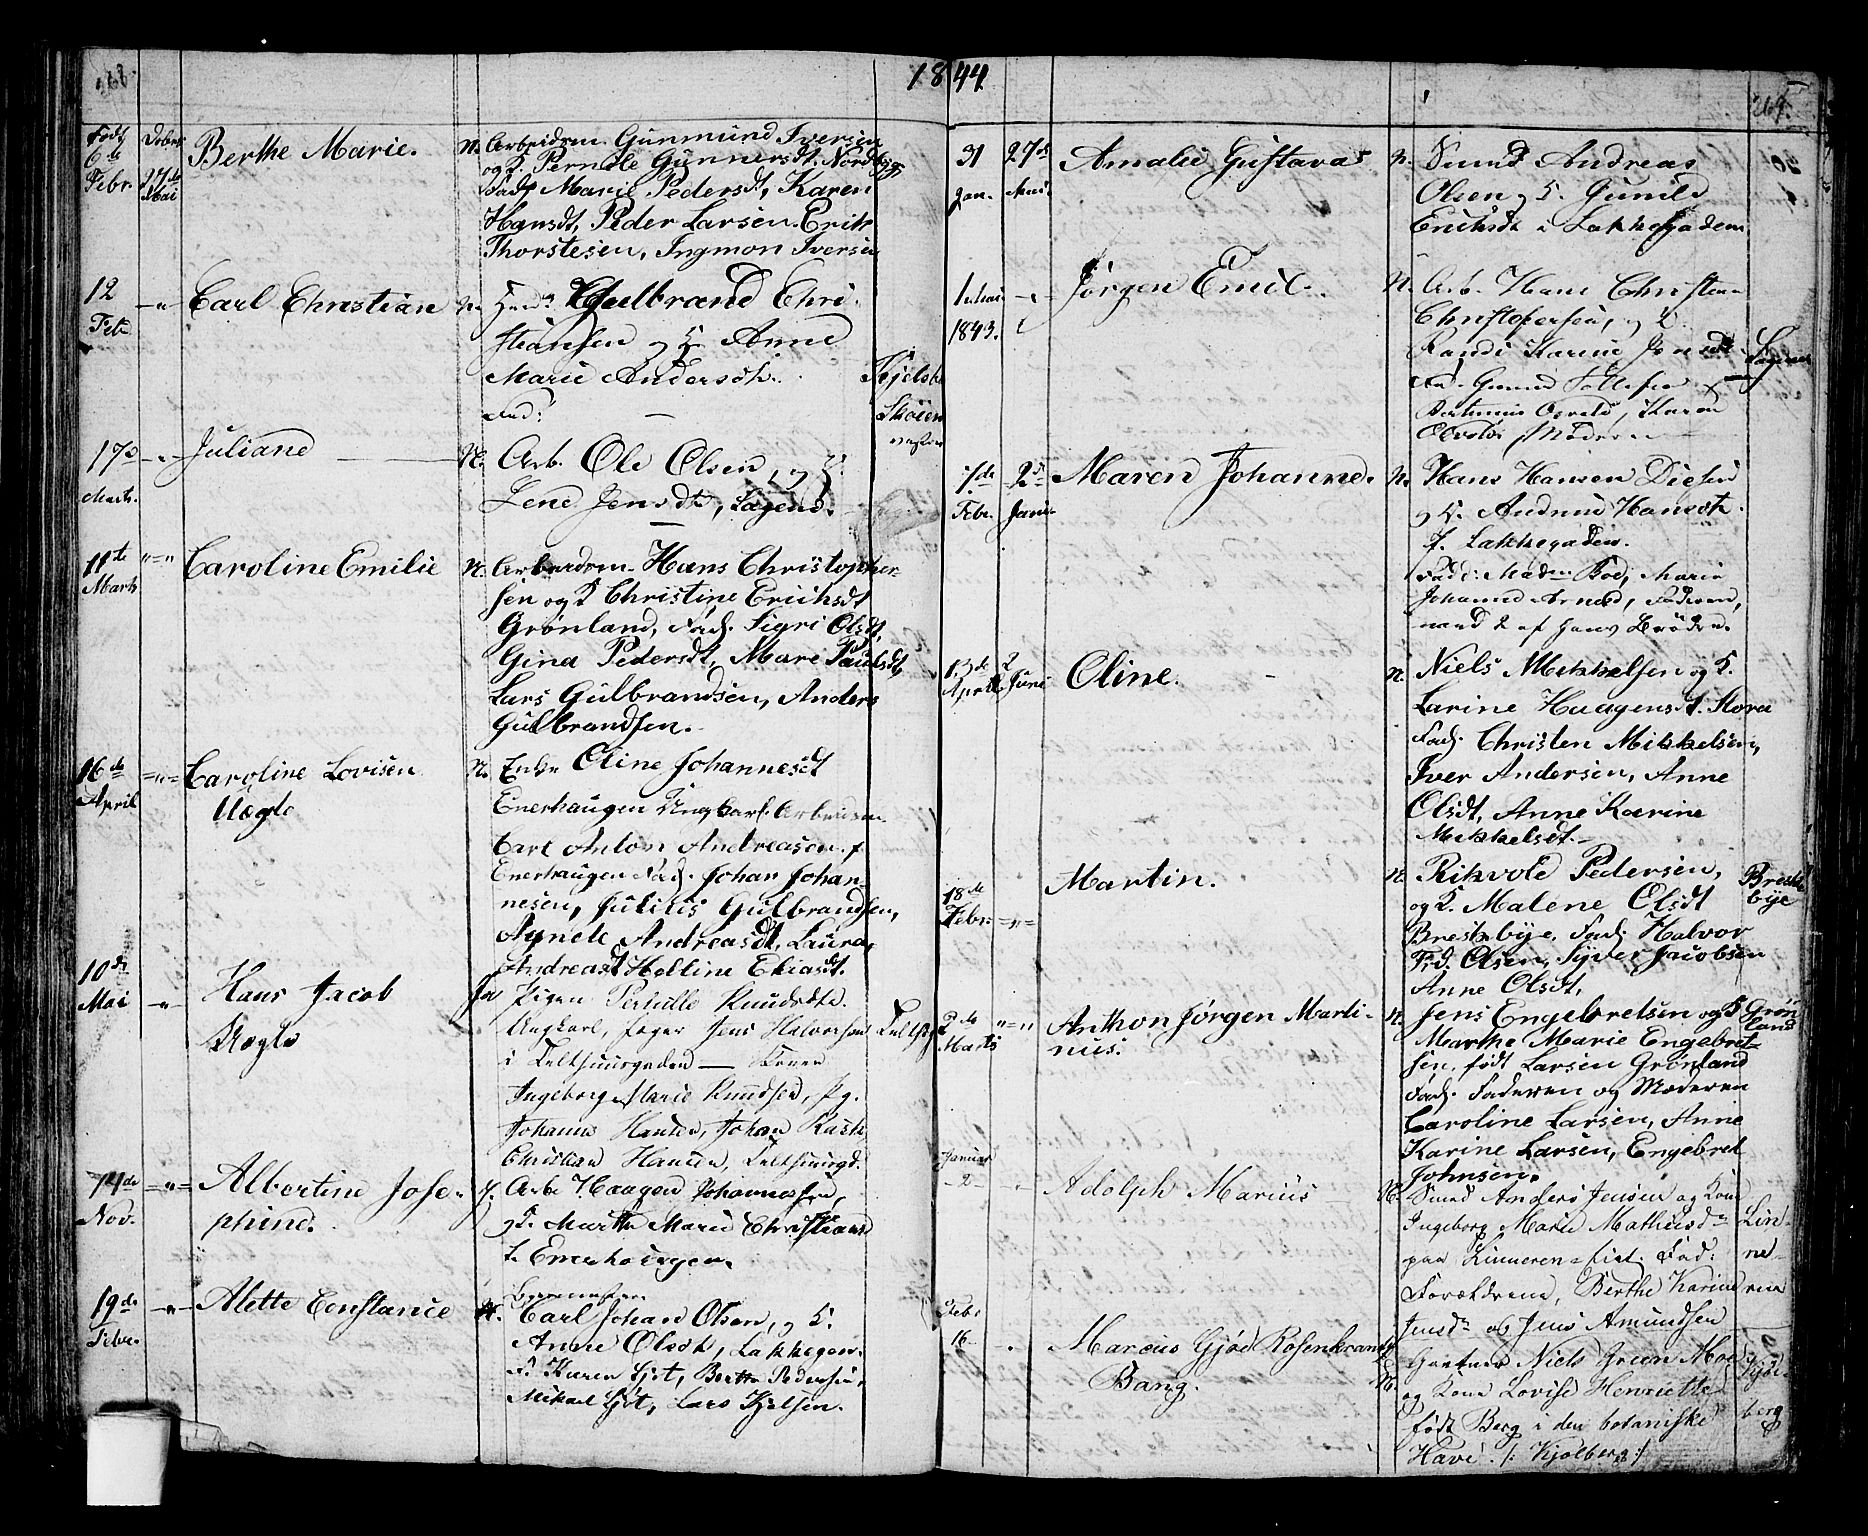 1844
264.
Født 6te Febr.
Døbes 27de Mai
Berthe Marie.
N. Arbeidsm. Gunmund Iversen
og K. Pernele Gunnersdt. Nordbyg
Fadd. Marie Pedersdt, Karen
Hansdt, Peder Larsen. Erik
Thorstesen, Ingmon Iversen
12 Feb.
Carl Christian
N. Gulbrand Chri-
stiansen og K. Anne
Marie Andersdt.
Fad:
Skøien
17de Marts.
Juliane
N. Arb. Ole Olsen, og K.
Lene Jensdt, Sagene.
11te Marts
Caroline Emilie
N. Arbeidsm. Hans Christopher
sen og K Christine Erichsdt
Grønland, Fadd. Sigri Olsdt,
Gina Pedersdt, Mare Paulsdt,
Lars Gulbrandsen, Anders
Gulbrandsen.
16de April
Caroline Lovisen
Uægte
N. Enke Oline Johannesdt
Enerhaugen Ungkarl. Arbeidsm.
Carl Anton Andreasen. f
Enerhaugen Fadd. Johan Johan-
nesen, Julius Gulbrandsen,
Agnete Andreasdt, Laura
Andreasdt Helline Eliasdt.
10de Mai
Hans Jacob
Uægte
Ja Pigen Pernille Knudsdtr.
Ungkarl, Jens Halvorsen
i
Ingeborg Marie Knudsen, Pg.
Johanne Hansen, Johan
Christian Hansen,
14de Nov.
Albertine Jose-
phine.
J. Arb. Haagen Johannessen,
og K. Marthe Marie Christians
f. Enerhaugen.
19de Febr.
Alette Constance
N.
Carl Johan Olsen, og K.
Anne Olsdt, Lakkegen.
F. Karen Sjøt, Berthe Pedersen,
Mikael Sjøt, Lars Kjelsen.
31 Jan.
27de Mai
Amalie Gustava
N. Smed Andreas
Olsen og K. Gunild
Erichsdt i Lakkegaden
1
1843.
Jørgen Emil.
N. Arb. Hans Christian
Christofersen, og K.
Randi Karine Jensdt
Fad. Gunder Tollefsen
Karen
Olsdt, Moderen
Sagene
7de Febr.
2de Juni
Maren Johanne.
N. Hans Hansen Diesen
og K. Andrine Hansdt.
f. Lakkegaden.
Fadd: Madm. Boe, Marie
Johanne Arnesd, Faderen,
samt 2 af hans Brødre.
13de April
2 Juni
Oline.
N. Niels Mikkelsen og K.
Larine Haagensdt.
Fadd. Christen Mikkelsen,
Iver Andersen, Anne
Olsdt, Anne Karine
Mikkelsdt.
18de Febr.
Martin.
N. Rikvold Pedersen,
og K. Malene Olsdt
Brekkebye, Fadd. Halvor
Frd. Olsen, Syver Jacobsen
Anne Olsdt,
Brekke
bye
2de Marts
Anthon Jørgen Marti-
nus.
N. Jens Engebretsen og K
Marthe Marie Engebret-
sen, født Larsen Grønland
Fadd. Faderen og Moderen
Caroline Larsen, Anne
Karine Larsen, Engebret
Johnsen.
Grøn
land
Januar 2
Adolph Marius
N. Smed Anders Jensen og Kone
Ingeborg Marie Mathiasdr
paa Linneren Fad:
Forældrene, Berthe Karine
Jensdr og Jens Amundsen
Lin-
ne-
ren
Feb. 16
Marcus Gjøe Rosenkrantz
Bang.
N. Gartner Niels Green Moe
og Kone Lovise Henriette
født Berg i den botaniske
Have. /: Kjølberg :/
Kjøl-
berg